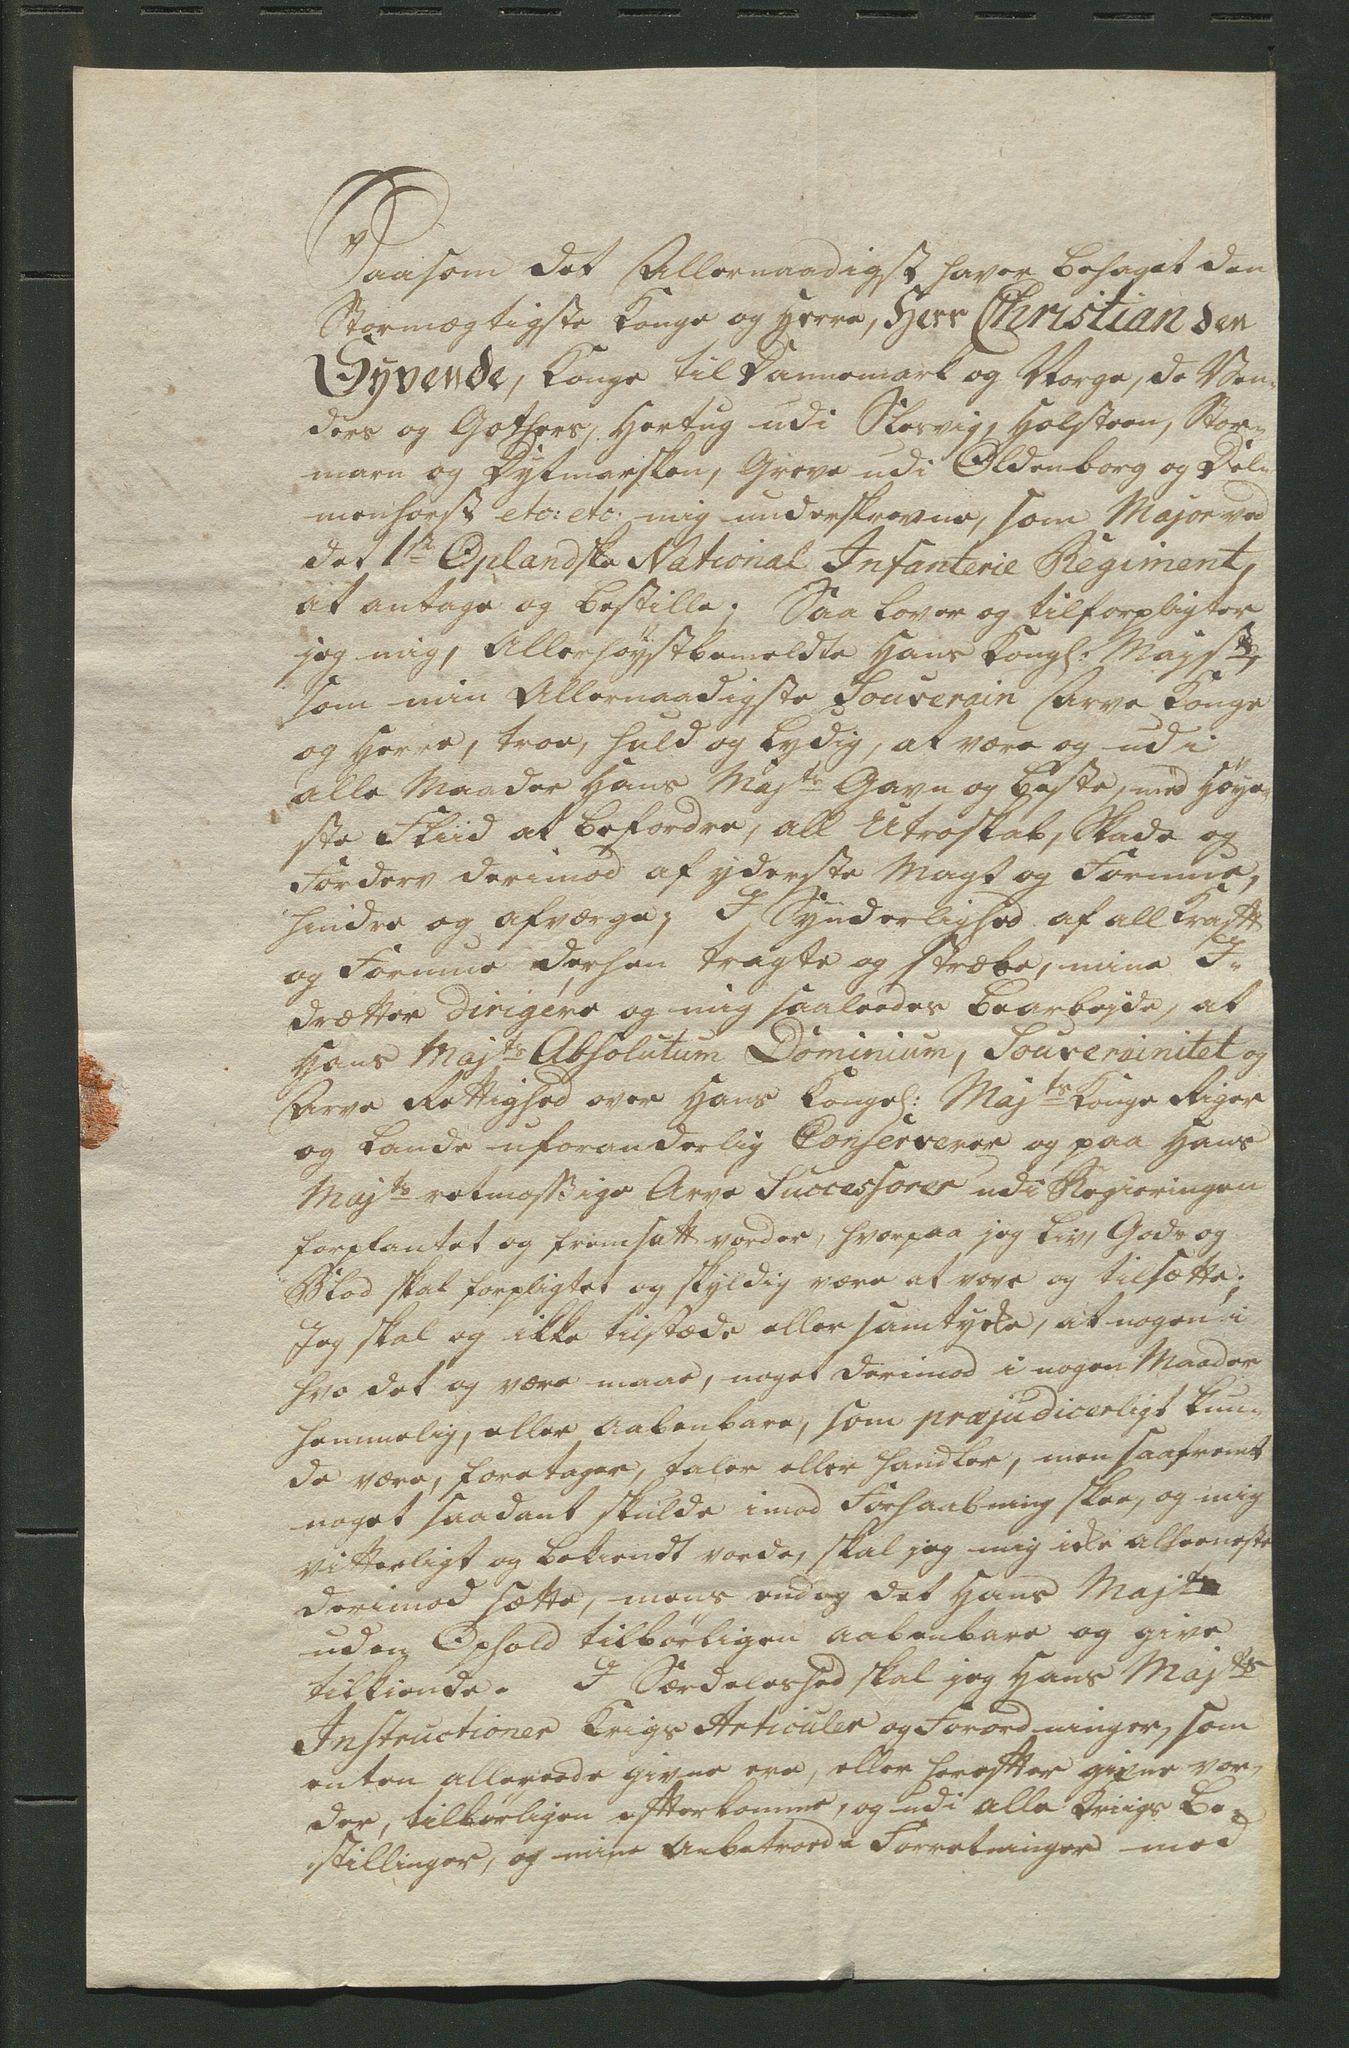 Saasom det Allernaadigst haver behaget den
Stormægtigste Konge og Herre, Herr Christian den
Syvende, Konge til Dannemark og Norge, de Ven-
ders og Gothers, Hertug udi Slesvig, Holsteen, Stor-
marn og Dytmarsken, Greve udi Oldenborg og Del-
menhorst etc: etc: mig underskrevne, som Major ved
det 1ste Oplandske National Infanterie Regiment,
at antage og bestille; Saa lover og tilforpligter
jeg mig, Allerhøystbemeldte Hans Kongl: Majst:
som min Allernaadigste Souverain Arve Konge
og Herre, troe, huld og lydig, at være og udi
alle Maader Hans Majts Gavn og beste, med Høye-
ste Fliid at befordre, all Utroskab, Skade og
Forderv derimod af yderste Magt og Formue,
hindre og afværge; I Synderlighed af all Krafft
og Formue derhen tragte og stræbe, mine I-
drætter dirigere og mig saaleedes bearbejde, at
Hans Majts Absolutum Dominium, Souverainitet og
Arve Rettighed over Hans Kongel: Majts Konge Riger
og Lande uforanderlig Conserverer og paa Hans
Majts retmæssige Arve Successorer udi Regieringen
forplantet og fremsatt vorder, hvorpaa jeg Liv, Gods og
Blod skal forpligtet og skyldig være at vove og tilsætte;
Jeg skal og ikke tilstæde eller samtykke, at nogen i
hvo det og være maae, noget derimod i nogen Maader
hemmelig, eller aabenbare, som præjudicerligt kun-
de være, foretager, taler eller handler, men saafremt
noget saadant skulde imod Forhaabning skee, og mig
vitterligt og bekiendt vorde, skal jeg mig ikke alleeneste
derimod sætte, mens endog det Hans Majts
uden Ophold tilbørligen aabenbare og give
tilkiende. I Særdeleshed skal jeg Hans Majts
Instructioner Krigs Articuler og Forordninger, som
enten allereede givne ere, eller herefter givne vor-
der, tilbørligen efterkomme, og udi alle Kriigs Be-
stillinger, og mine Anbetroede Forretninger med